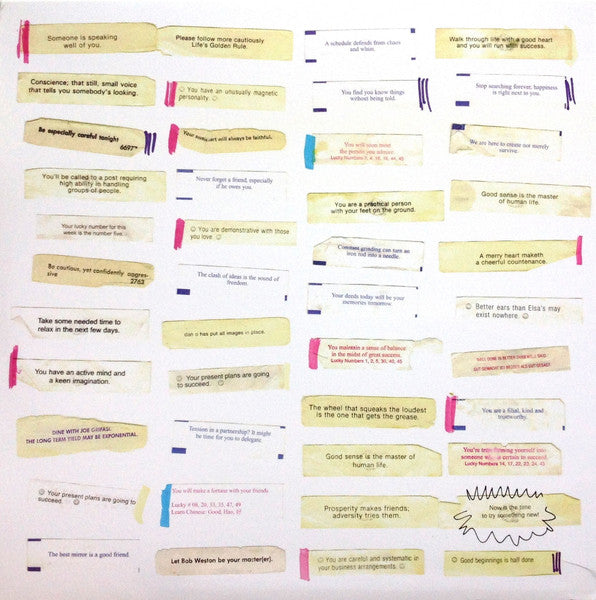 Someone is speaking
well of you.
Conscience; that still, small voice
that tells you somebody's looking.
Be especially careful tonight
6697
You'll be called to a post requiring
high ability in handling
groups of people.
Your lucky number for this
week is the number five.
Be cautious, yet confidently aggres-
sive
2763
Take some needed time to
relax in the next few days.
You have an active mind and
a keen imagination.
DINE WITH JOE
THE LONG TERM YIELD MAY BE EXPONENTIAL.
☺ Your present plans are going to
succeed. ☺
The best mirror is a good friend.
Please follow more cautiously
Life's Golden Rule.
☺ You have an unusually magnetic
personality. ☺
Your sweetheart will always be faithful.
Never forget a friend, especially
if he owes you.
☺ You are demonstrative with those
you love. ☺
The clash of ideas is the sound of
freedom.
dan o has put all images in place.
☺ Your present plans are going
to succeed. ☺
Tension in a partnership? It might
be time for you to delegate
You will make a fortune with your friends
Lucky # 08, 20, 33, 35, 47, 49
Learn Chinese: Good, Hao,
Let Bob Weston be your ma:ter(er).
A schedule defends from chaos
and whim.
You find you know things
without being told.
You will soon meet
the person you admire.
Lucky Numbers 7, 4, 16, 44, 45
You are a practical person
with your feet on the ground.
Constant grinding can turn an
iron rod into a needle.
Your deeds today will be your
memories tomorrow.
You maintain a sense of balance
in the midst of great success.
Lucky Numbers 1, 2, 5, 30, 40, 45
The wheel that squeaks the loudest
is the one that gets the grease.
Good sense is the master of
human life.
Prosperity makes friends;
adversity tries them.
☺ You are careful and systematic in
your business arrangements. ☺
Walk through life with a good heart
and you will run with success.
Stop searching forever, happiness
is right next to you.
We are here to create not merely
survive.
Good sense is the master
of human life.
A merry heart maketh
a cheerful countenance.
☺ Better ears than Elsa's may
exist nowhere. ☺
WELL DONE IS BETTER THAN WELL SAID
GUT GEMACHT IST BESSER ALS GUT GESAGT
You are a filial, kind and
trustworthy.
You're transforming yourself into
someone who is certain to succeed.
Lucky Numbers 14, 17, 22, 23, 24, 43
Now is the time
to try something new!
☺ Good beginnings is half done